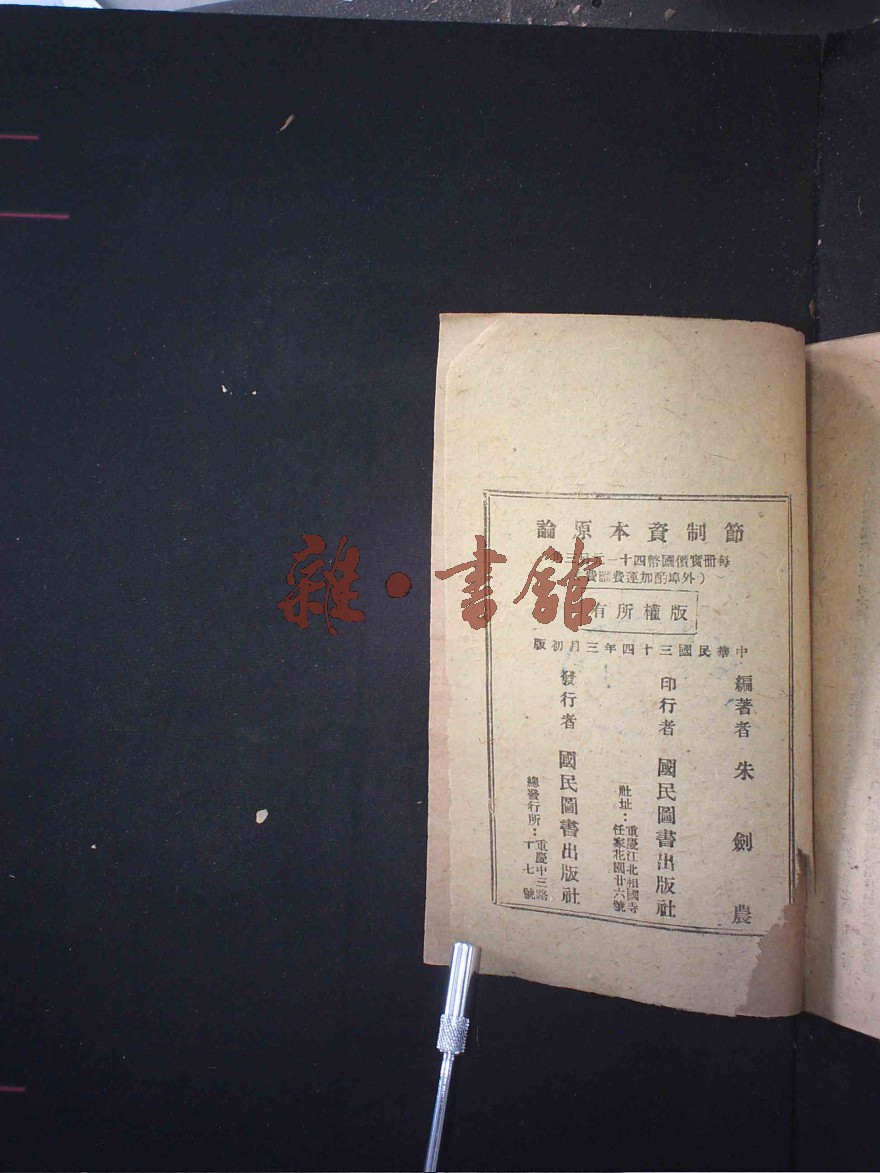 節制資本原論
每冊實價國幣四十一元
（外埠酌加運費匯費）
版權所有
中華民國三十四年三月初版
編著者 朱劍農
印行者 國民圖書出版社
社址：重慶江北相國寺
任家花園廿六號
發行者 國民圖書出版社
總發行所：重慶中三路
十七號
雜·書館